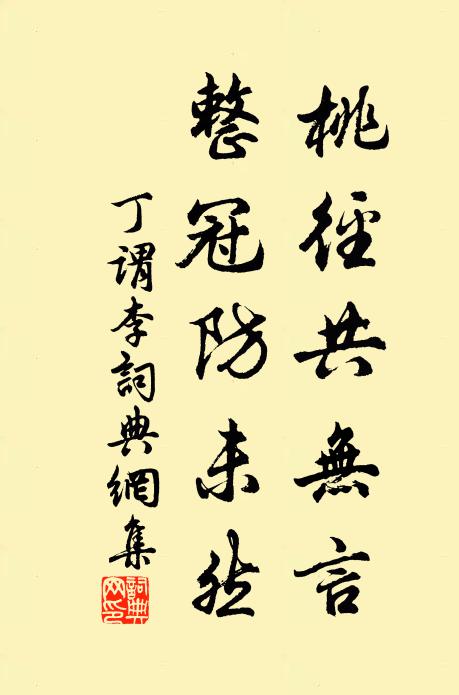 桃徑共無言
整冠防未然
丁謂李詞典網集
詞典网印